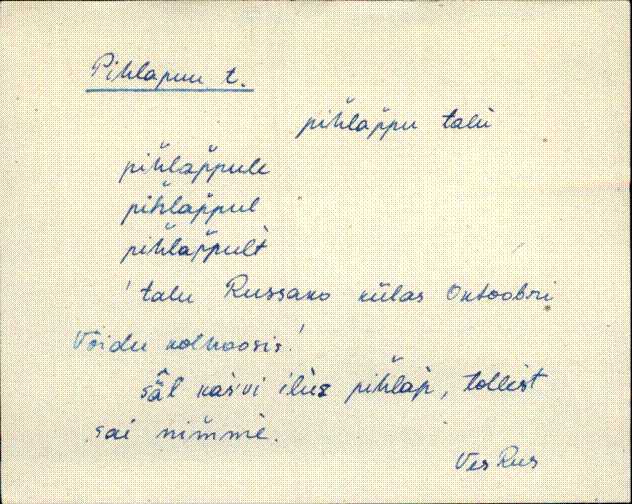 Pihlapuu t.
pih̆lap̆pu talu
pih̆lap̆pule
pih̆lap̆pul
pih̆lap̆pult
'talu Russako külas Oktoobri
Võidu kolhoosis.'
säl kaśvi ilus pih̆lap, tollest
sai nim̆mè.
Ves Rus